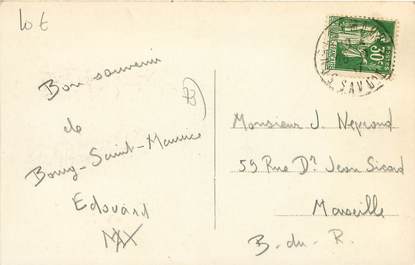 10 €
Bon souvenir
de
Bourg-Saint-Maurice
Edouard
MAX
30c
SAVOIE
Monsieur J. Neyrand
59 Rue Dr Jean Sicard
Marseille
B.-du-R.